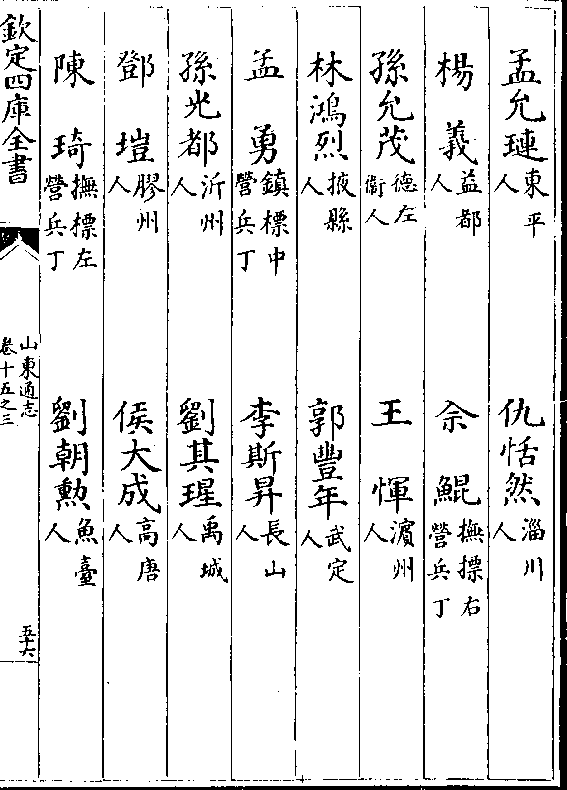 孟允璉東平人　仇恬然淄川人
楊義益都人　佘鯤撫摽右營兵丁
孫允茂德左衞人　王惲濵州人
林鴻烈掖縣人　郭豐年武定人
孟勇鎮標中營兵丁　李斯昇長山人
孫光都沂州人　劉其瑆禹城人
鄧塏膠州人　侯大成高唐人
陳琦撫標左營兵丁　劉朝勲魚臺人
欽定四庫全書
山東通志
卷十五之三
五十六